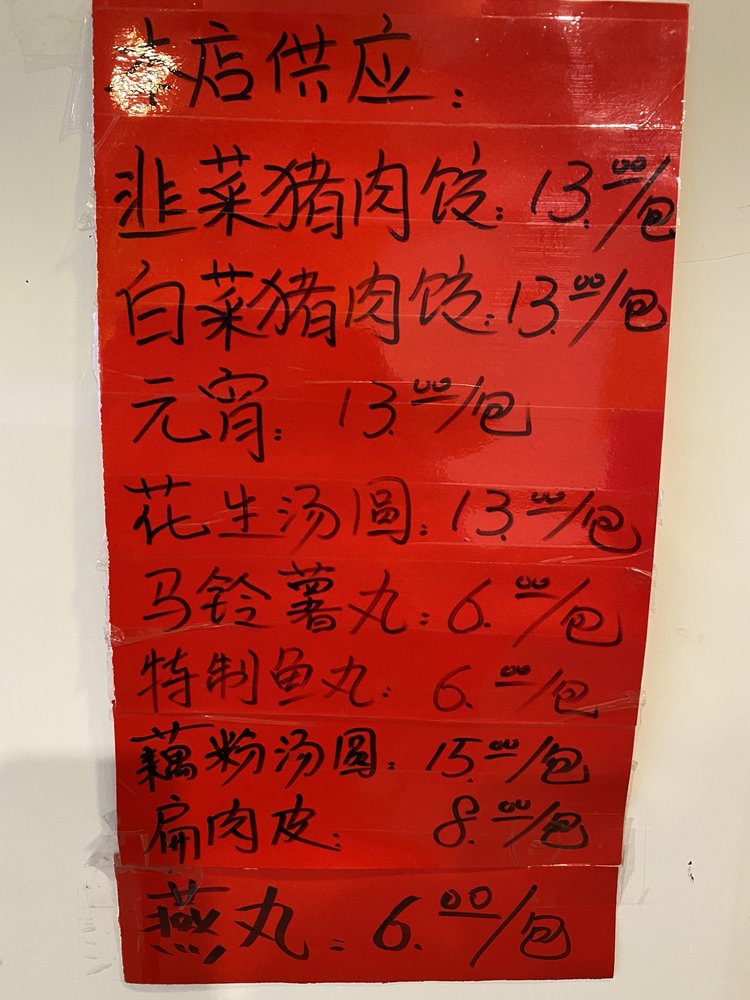 本店供应:
韭菜猪肉饺:13.00/包
白菜猪肉饺:13.00/包
元宵:13.00/包
花生汤圆:13.00/包
马铃薯丸:6.00/包
特制鱼丸:6.00/包
藕粉汤圆:15.00/包
扁肉皮:8.00/包
燕丸:6.00/包